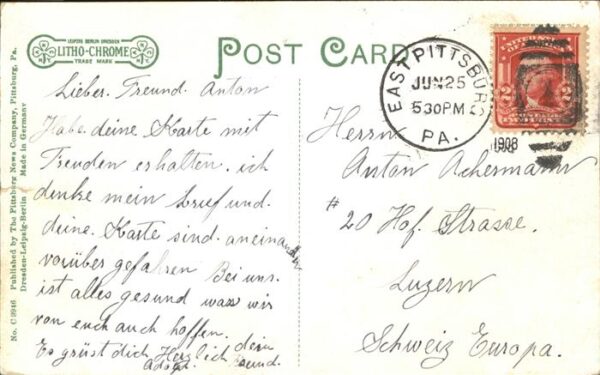 LEIPZIG BERLIN DRESDEN
LITHO-CHROME
TRADE MARK
POST CARD
EAST PITTSBURG
JUN 25
5 30 PM
PA.
1908
2 2
No. C 9946 Published by The Pittsburg News Company, Pittsburg, Pa.
Dresden-Leipzig-Berlin Made in Germany
Lieber. Freund. Anton
Habe deine Karte mit
Freuden erhalten. ich
denke mein brief und.
deine. Karte sind. aneinander
vorüber gefahren Bei uns.
ist alles gesund was wir
von euch auch hoffen.
Es grüst dich Herzlich dein
Freund.
Herrn
Anton Achermann
# 20 Hof. Strasse.
Luzern
Schweiz Europa.